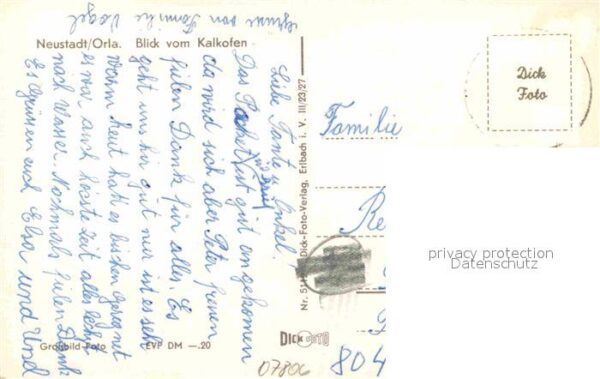 Neustadt/Orla. Blick vom Kalkofen
Grüsse von Familie Vogel
Liebe Tante u. Onkel!
Das Packet ist gut angekommen
und Brief
da wird sich aber Peter freuen
filen Dank für alles. Es
geht uns hir gut nur ist es sehr
warm heut hat es bischen geregnet
es war auch höste zeit alles lechst
nach Wasser. Nochmals filen Dank
Es grüssen euch Elsa und Ursel
Großbild-Foto
EVP DM —.20
Dick-Foto-Verlag, Erlbach i. V. III/23/27
DICK FOTO
07806
Dick
Foto
Familie
Re
804
privacy protection
Datenschutz